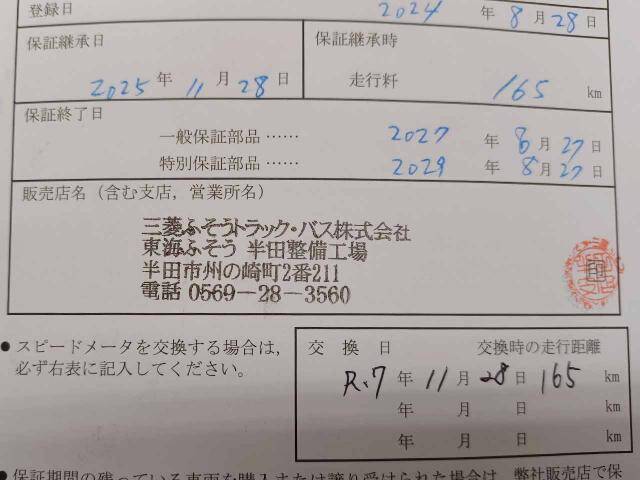 登録日 2024 年 8 月 28 日
保証継承日
2025 年 11 月 28 日
保証継承時
走行粁 165 km
保証終了日
一般保証部品…… 2027 年 8 月 27 日
特別保証部品…… 2029 年 8 月 27 日
販売店名（含む支店，営業所名）
三菱ふそうトラック・バス株式会社
東海ふそう 半田整備工場
半田市州の崎町2番211
電話 0569-28-3560
印
● スピードメータを交換する場合は，
必ず右表に記入してください。
交 換 日 交換時の走行距離
R.7 年 11 月 28 日 165 km
年 月 日 km
年 月 日 km
● 保証期間の残っている車両を購入または譲り受けられた場合は，弊社販売店で保